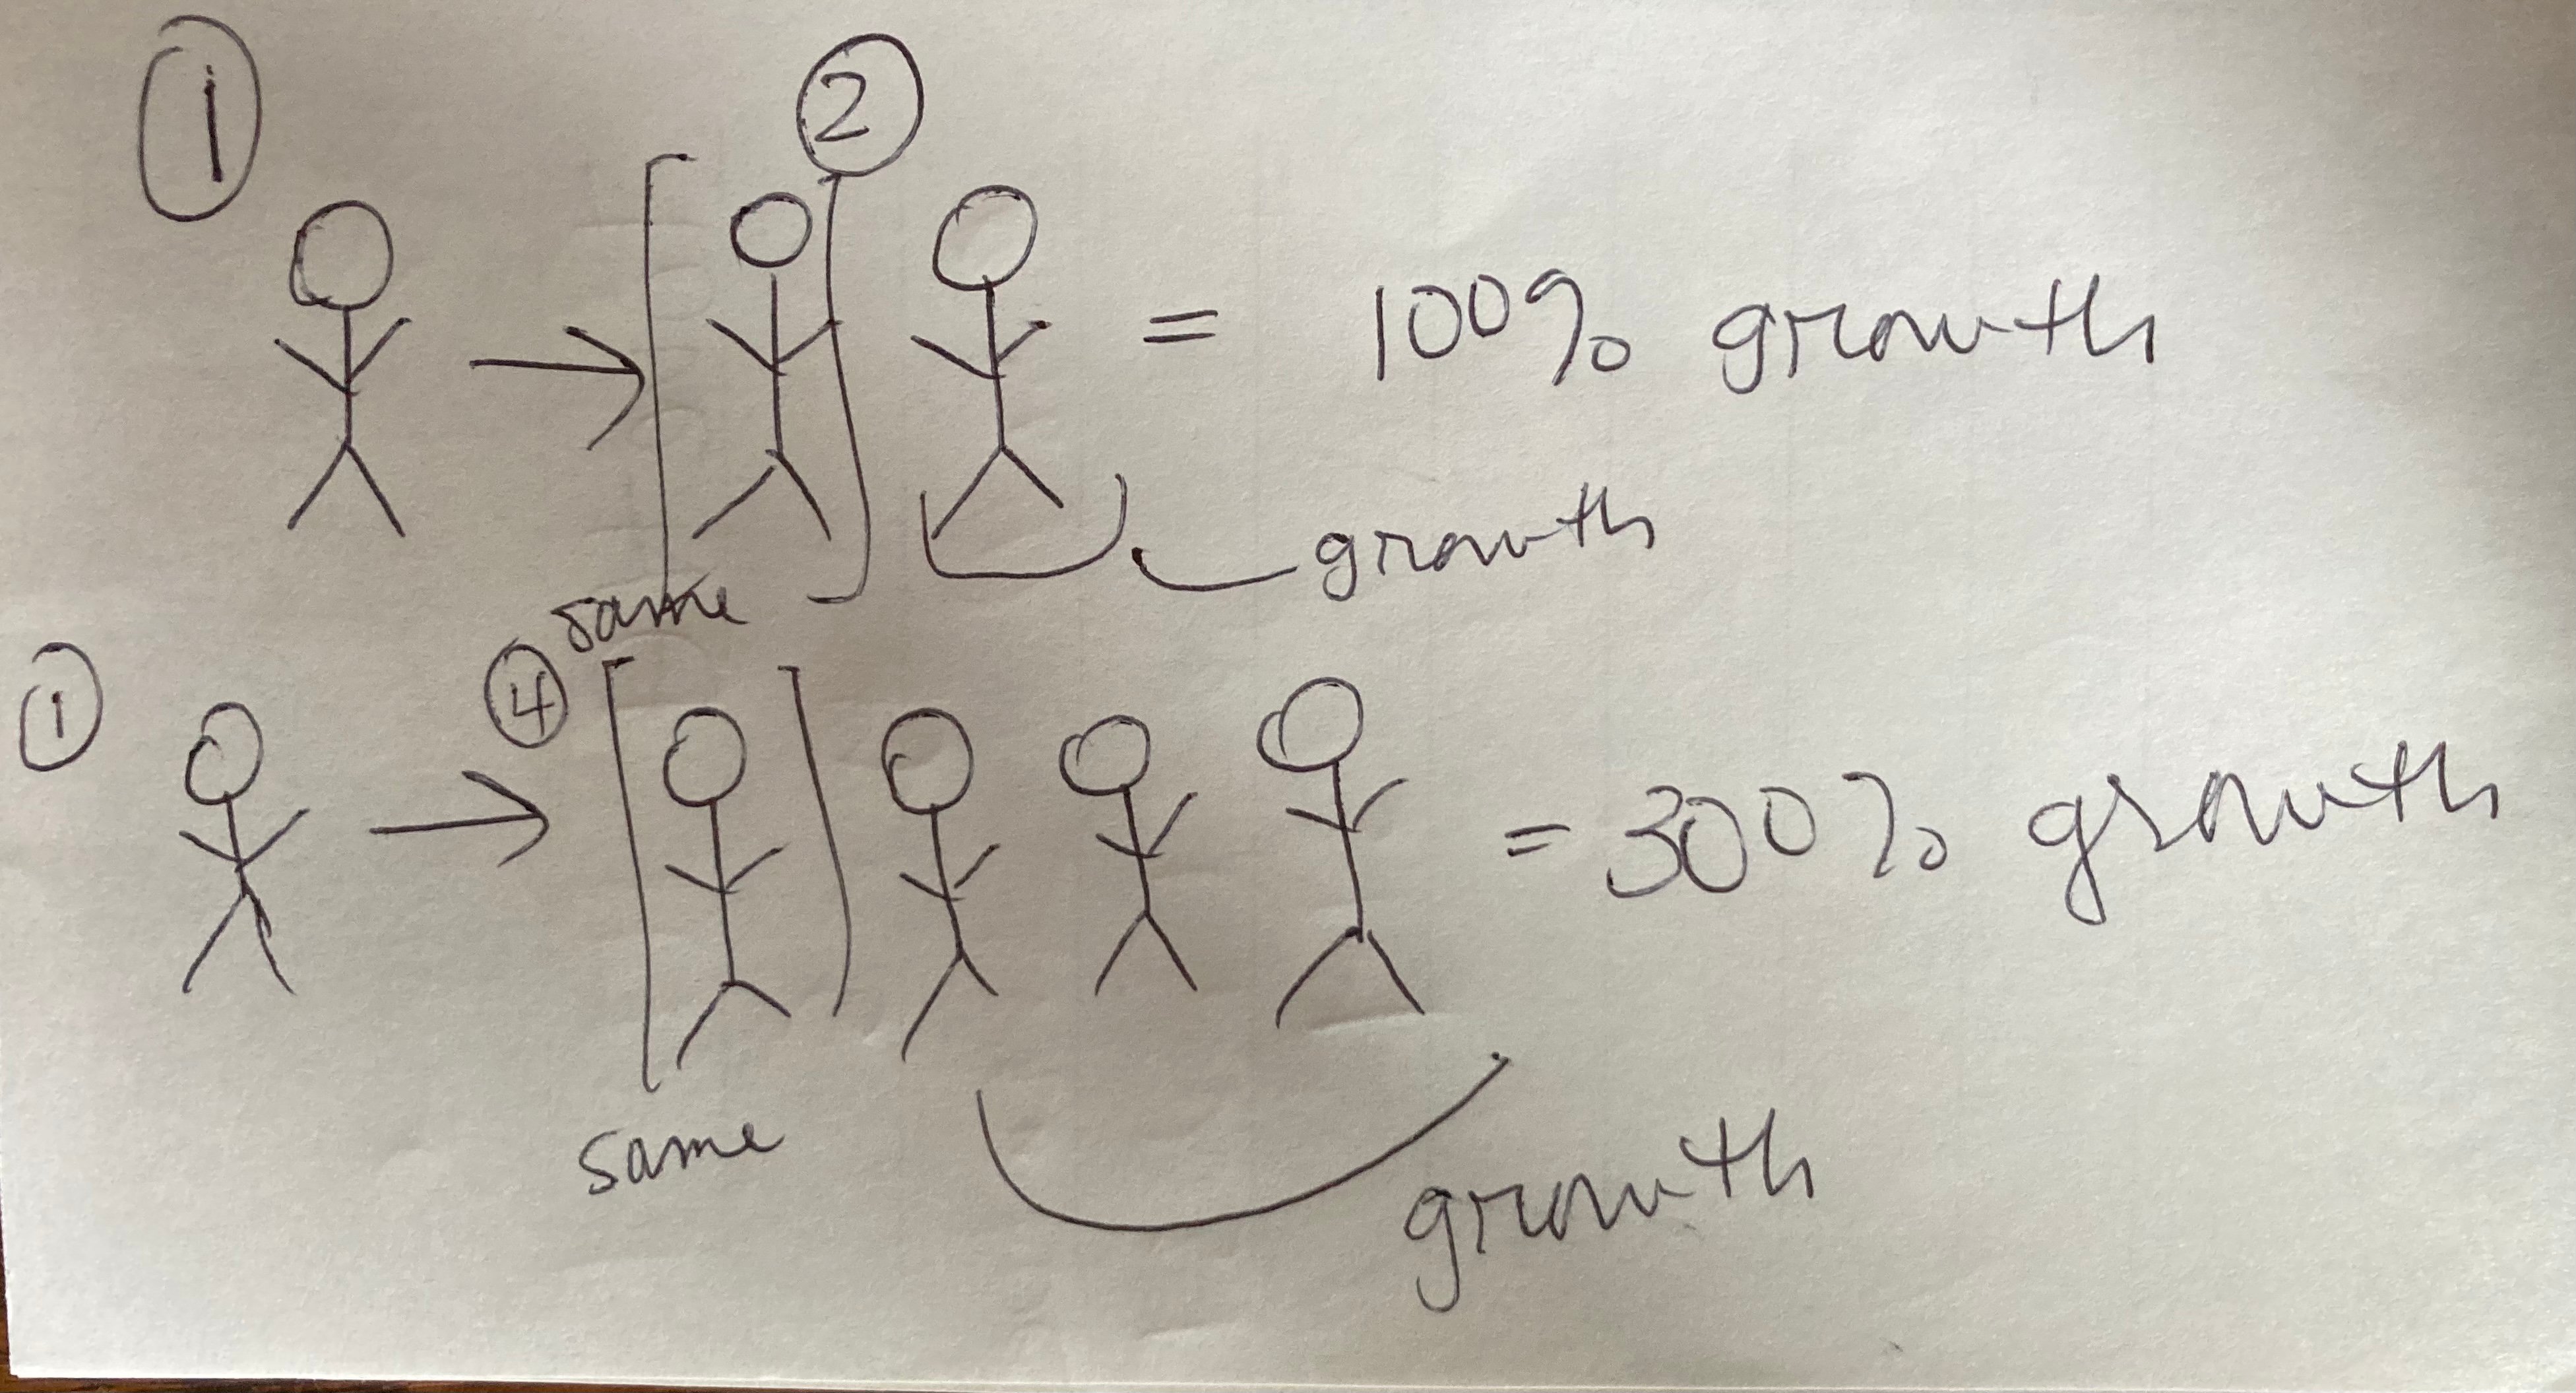 1
2
= 100% growth
growth
same
1
4
= 300% growth
same
growth